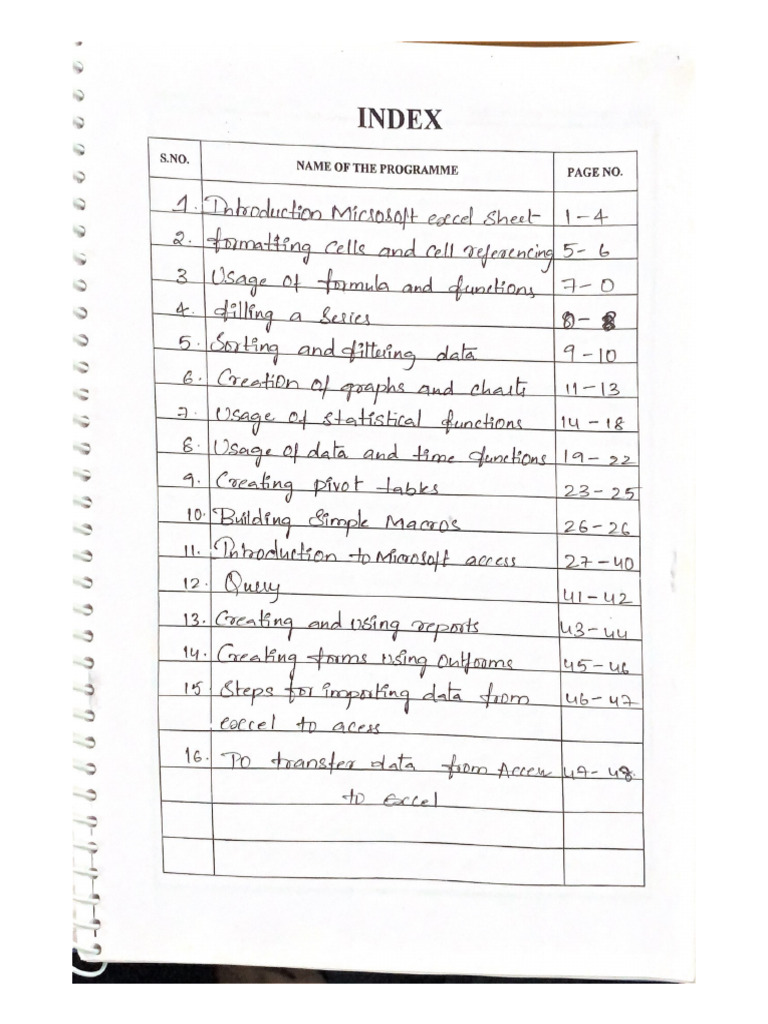 INDEX
S.NO. NAME OF THE PROGRAMME PAGE NO.
1. Introduction Microsoft excel Sheet 1-4
2. formatting cells and cell referencing 5-6
3 Usage of formula and functions 7-0
4. filling a Series 8
5. Sorting and filtering data 9-10
6. Creation of graphs and charts 11-13
7. Usage of statistical functions 14-18
8. Usage of data and time functions 19-22
9. Creating pivot tables 23-25
10. Building Simple Macros 26-26
11. Introduction to Microsoft access 27-40
12. Query 41-42
13. Creating and using reports 43-44
14. Creating forms using 45-46
15 Steps for importing data from 46-47
excel to acess
16. To transfer data from 48
to excel